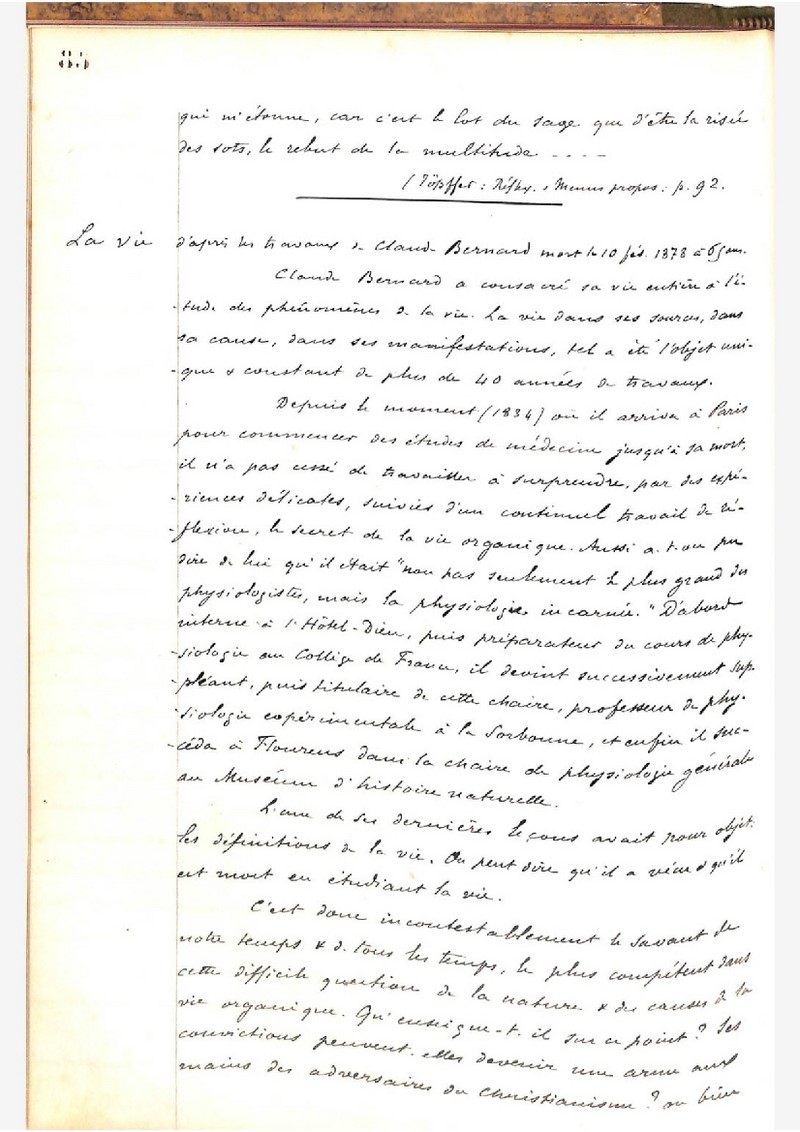 85
qui m'étonne, car c'est le lot du sage que d'être la risée
des sots, le rebut de la multitude ....
(Töpffer : Réflex. & Menus propos : p. 92.
La vie d'après les travaux de Claude Bernard mort le 10 fév. 1878 à 65 ans.
Claude Bernard a consacré sa vie entière à l'é-
-tude des phénomènes de la vie. La vie dans ses sources, dans
sa cause, dans ses manifestations, tel a été l'objet uni-
-que & constant de plus de 40 années de travaux.
Depuis le moment (1834) où il arriva à Paris
pour commencer des études de médecine jusqu'à sa mort,
il n'a pas cessé de travailler à surprendre, par des expé-
-riences délicates, suivies d'un continuel travail de ré-
-flexion, le secret de la vie organique. Aussi a-t-on pu
dire de lui qu'il était "non pas seulement le plus grand des
physiologistes, mais la physiologie incarnée." D'abord
interne à l'Hôtel-Dieu, puis préparateur du cours de phy-
-siologie au Collège de France, il devint successivement sup-
-pléant, puis titulaire de cette chaire, professeur de phy-
-siologie expérimentale à la Sorbonne, et enfin il suc-
-céda à Flourens dans la chaire de physiologie générale
au Muséum d'histoire naturelle.
L'une de ses dernières leçons avait pour objet:
les définitions de la vie. On peut dire qu'il a vécu & qu'il
est mort en étudiant la vie.
C'est donc incontestablement le savant de
notre temps & de tous les temps, le plus compétent dans
cette difficile question de la nature & des causes de la
vie organique. Qu'enseigne-t-il sur ce point? Ses
convictions peuvent-elles devenir une arme aux
mains des adversaires du Christianisme? ou bien